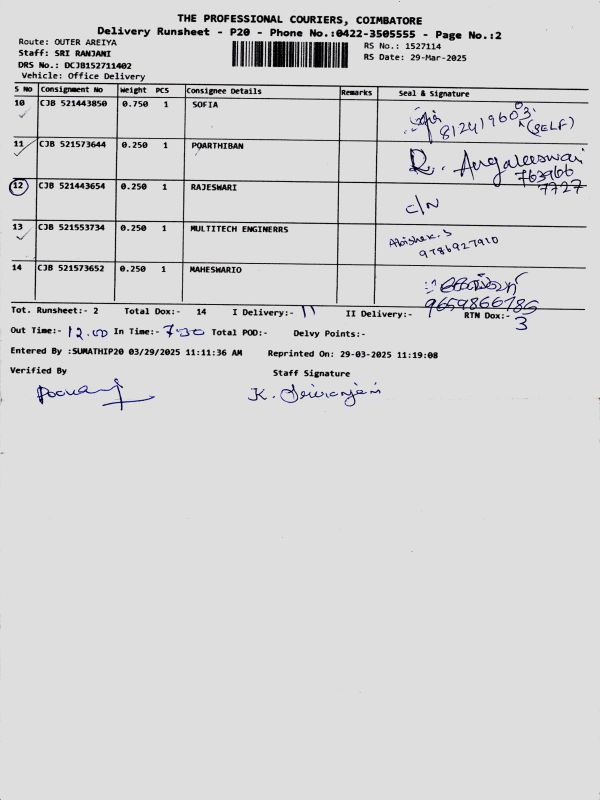 THE PROFESSIONAL COURIERS, COIMBATORE
Delivery Runsheet - P20 - Phone No.:0422-3505555 - Page No.:2
Route: OUTER AREIYA
RS No.: 1527114
Staff: SRI RANJANI
RS Date: 29-Mar-2025
DRS No.: DCJB152711402
Vehicle: Office Delivery
S No Consignment No Weight PCS Consignee Details Remarks Seal & Signature
10 CJB 521443850 0.750 1 SOFIA
812419603 (SELF)
11 CJB 521573644 0.250 1 POARTHIBAN R. Angaleeswari
763966
7727
12 CJB 521443654 0.250 1 RAJESWARI
C/N
13 CJB 521553734 0.250 1 MULTITECH ENGINERRS Abishek.S
9786927910
14 CJB 521573652 0.250 1 MAHESWARIO
9659866785
Tot. Runsheet:- 2 Total Dox:- 14 I Delivery:- 11 II Delivery:- RTN Dox:- 3
Out Time:- 12.00 In Time:- 7.30 Total POD:- Delvy Points:-
Entered By :SUMATHIP20 03/29/2025 11:11:36 AM Reprinted On: 29-03-2025 11:19:08
Verified By Staff Signature
K. Sriranjani